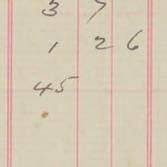 3 7
1 2 6
45